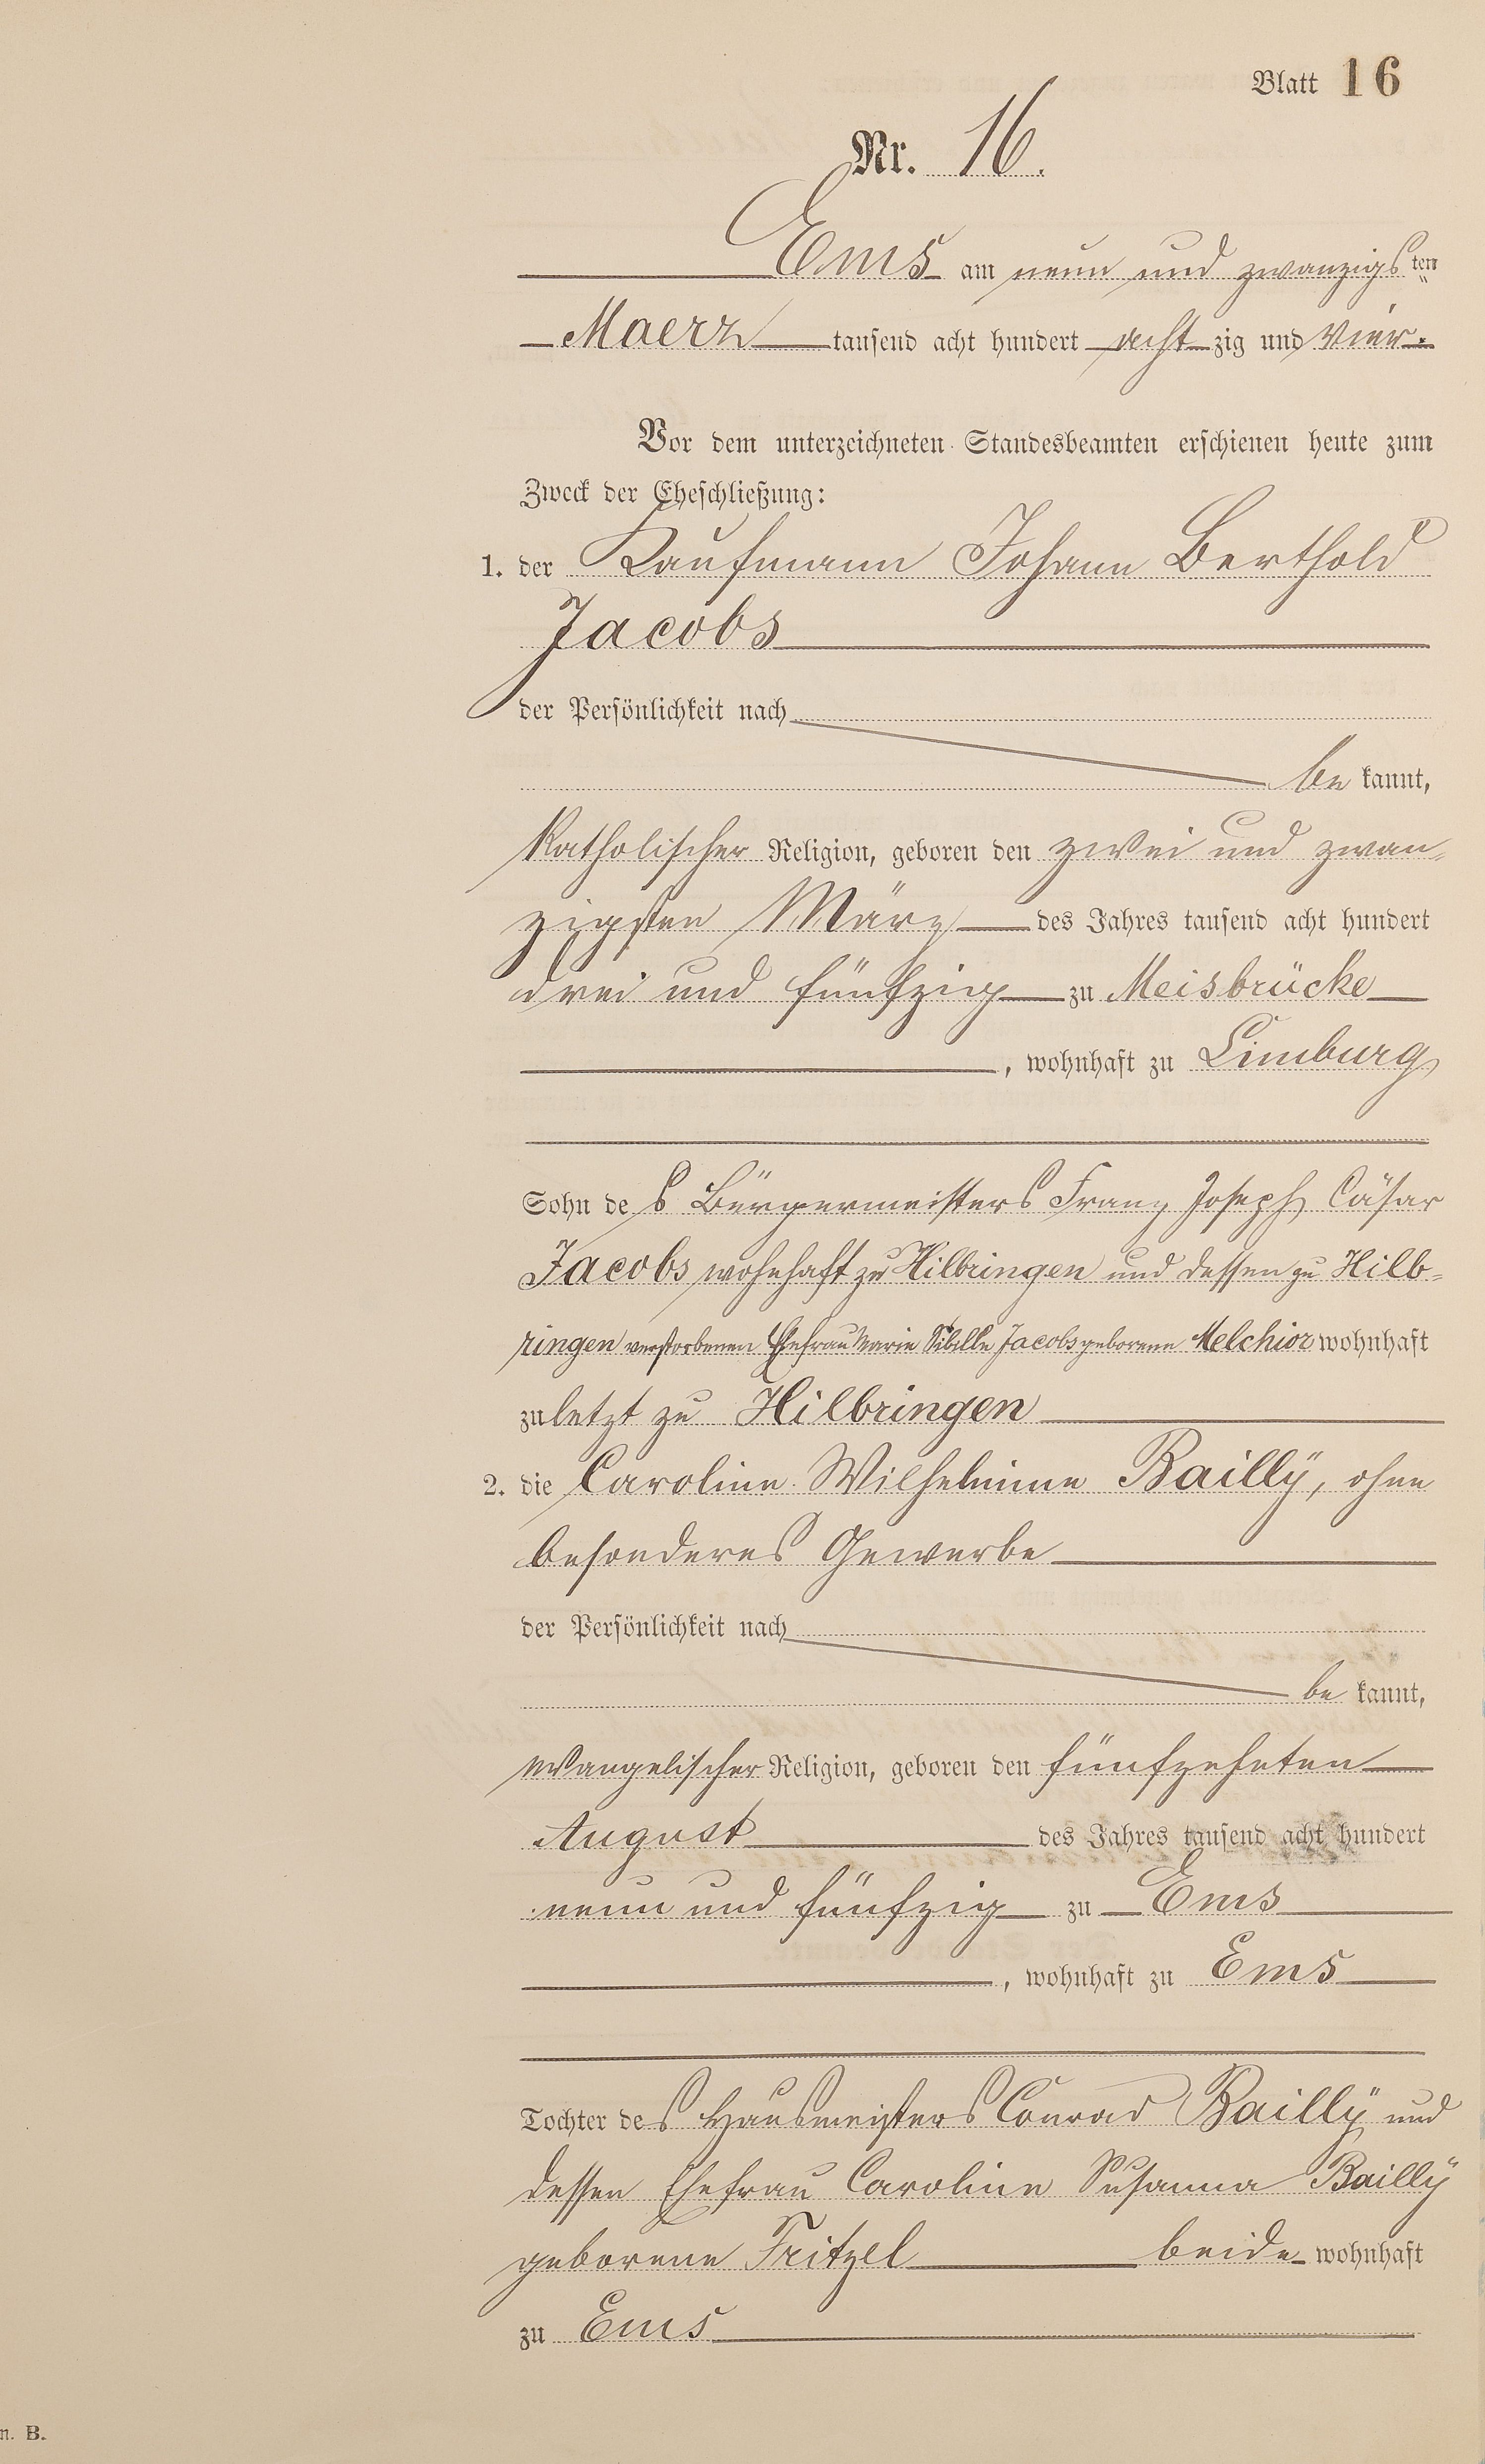 Blatt 16
Nr. 16.
Ems am neun und zwanzigsten
Maerz tausend acht hundert achtzig und vier.
Vor dem unterzeichneten Standesbeamten erschienen heute zum
Zweck der Eheschließung:
1. der Kaufmann Johann Berthold
Jacobs
der Persönlichkeit nach
bekannt,
katholischer Religion, geboren den zwei und zwan-
zigsten März des Jahres tausend acht hundert
drei und fünfzig zu Meisbrücke
, wohnhaft zu Limburg
Sohn des Bürgermeisters Franz Joseph Cäsar
Jacobs wohnhaft zu Hilbringen und dessen zu Hilb-
ringen verstorbenen Ehefrau Marie Sibille Jacobs geborene Melchior wohnhaft
zuletzt zu Hilbringen
2. die Caroline Wilhelmine Baillÿ, ohne
besonderes Gewerbe
der Persönlichkeit nach
bekannt,
evangelischer Religion, geboren den fünfzehnten
August des Jahres tausend acht hundert
neun und fünfzig zu Ems
, wohnhaft zu Ems
Tochter des Hausmeisters Conrad Baillÿ und
dessen Ehefrau Caroline Susanna Baillÿ
geborene Fritzel beide wohnhaft
zu Ems
n. B.